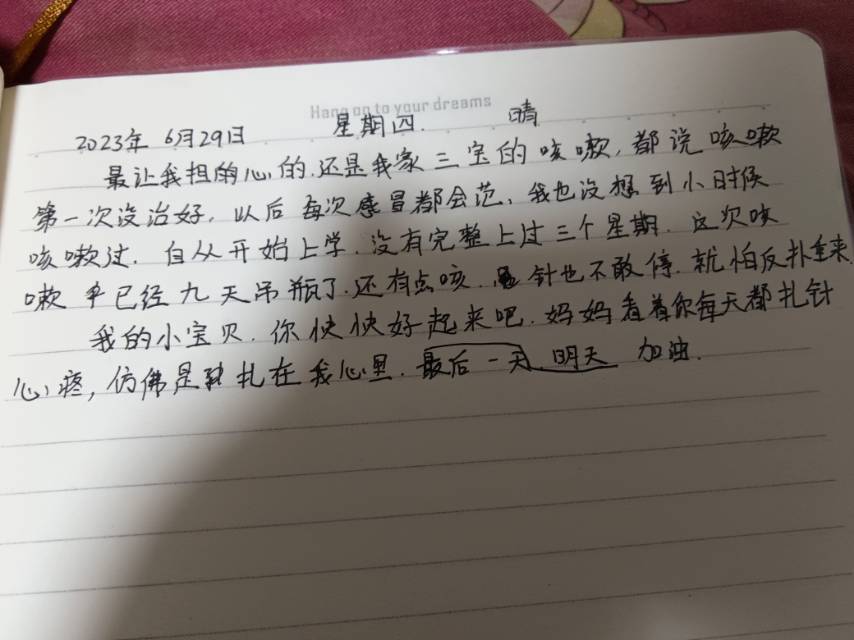 Hang on to your dreams
2023年 6月29日 星期四. 晴
最让我担的心的.还是我家三宝的咳嗽,都说咳嗽
第一次没治好,以后每次感冒都会范、我也没想到小时候
咳嗽过.自从开始上学.没有完整上过三个星期.这次咳
嗽 已经九天吊瓶了.还有点咳. 针也不敢停.就怕反扑重来.
我的小宝贝.你快快好起来吧.妈妈看着你每天都扎针
心疼,仿佛是 扎在我心里.最后一天.明天 加油.